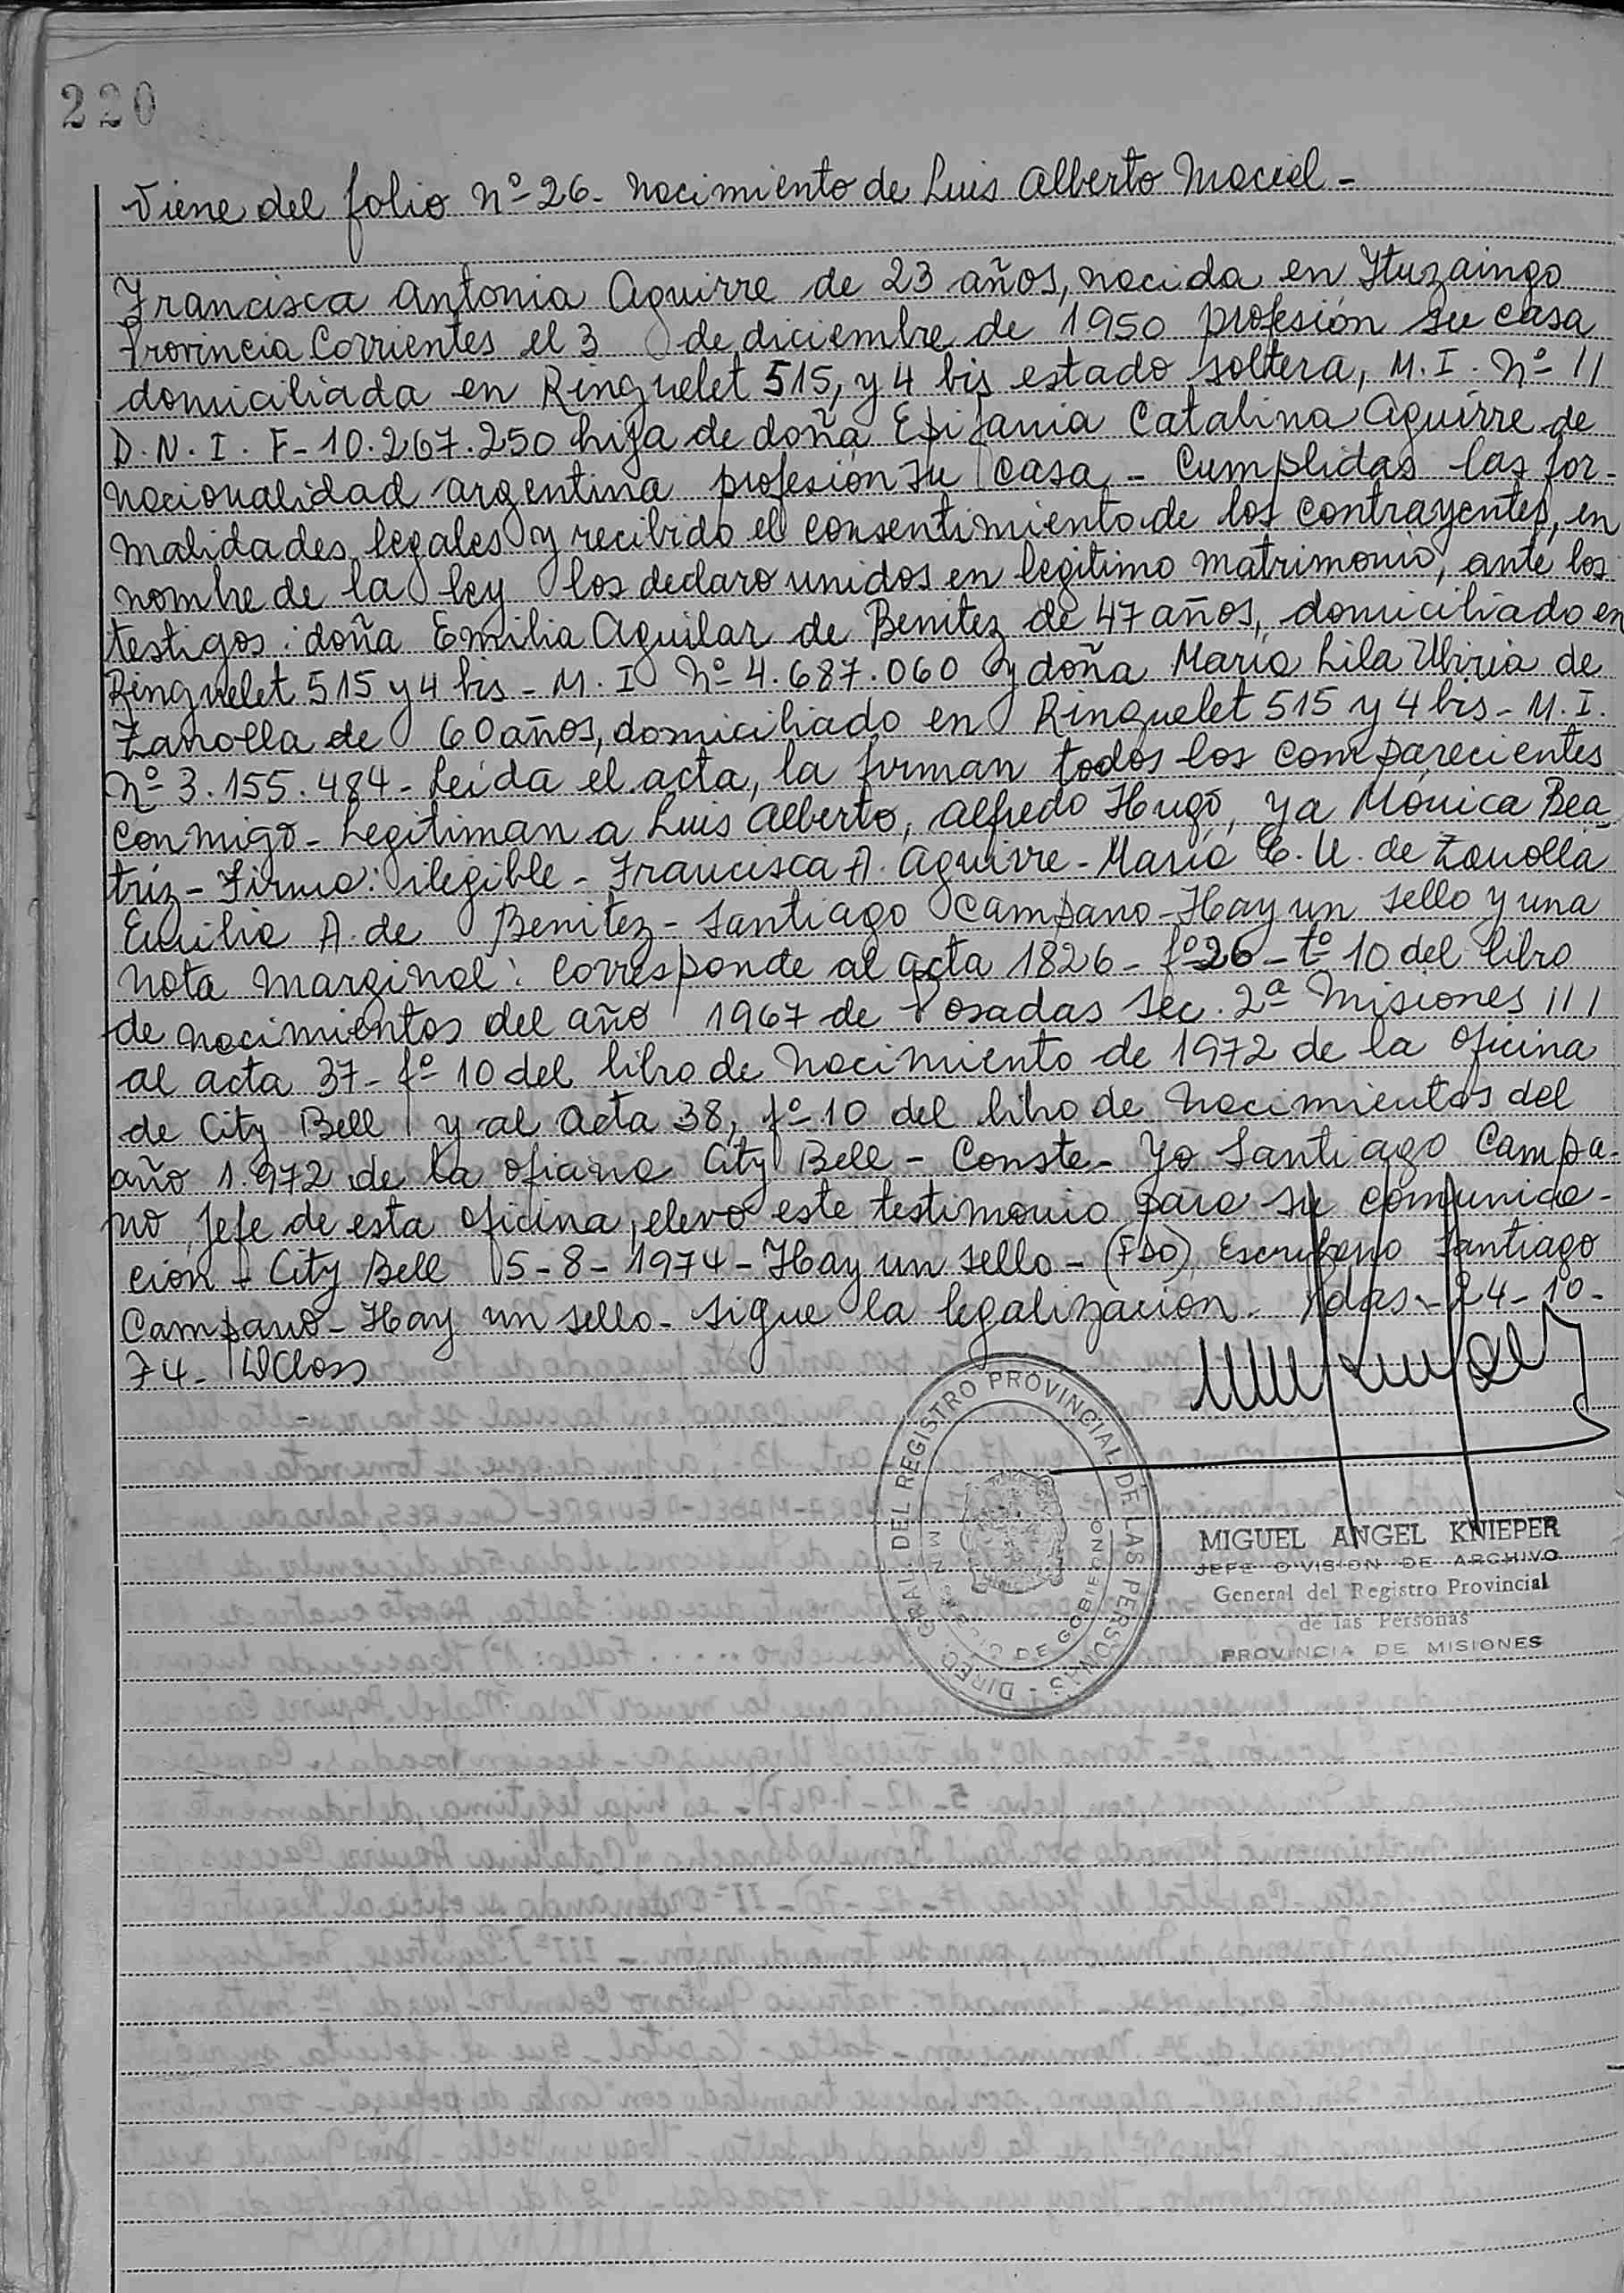 220
Viene del folio Nº 26- Nacimiento de Luis Alberto Maciel -
Francisca Antonia Aguirre de 23 años, nacida en Ituzaingo
Provincia Corrientes el 3 de diciembre de 1950 profesión su casa
domiciliada en Ringuelet 515, y 4 bis estado soltera, M. I. Nº 11
D. N. I. F- 10.267.250 hija de doña Epifania Catalina Aguirre de
nacionalidad argentina profesión su casa - Cumplidas las for-
malidades legales y recibido el consentimiento de los contrayentes, en
nombre de la ley los declaro unidos en legitimo matrimonio, ante los
testigos: doña Emilia Aguilar de Benitez de 47 años, domiciliado en
Ringuelet 515 y 4 bis - M. I Nº 4.687.060 y doña Maria Lila Ubiria de
Zanolla de 60 años, domiciliado en Ringuelet 515 y 4 bis - M. I.
Nº 3.155.484 - Leida el acta, la firman todos los comparecientes
conmigo - Legitiman a Luis Alberto, Alfredo Hugo, y a Mónica Bea-
triz - Firma: ilegible - Francisca A. Aguirre - Maria U. de Zanolla
Emilia A. de Benitez - Santiago Campano - Hay un sello y una
nota marginal: Corresponde al acta 1826 - fº 26 - tº 10 del libro
de nacimientos del año 1967 de Posadas Sec. 2ª Misiones 111
al acta 37 - fº 10 del libro de Nacimiento de 1972 de la oficina
de City Bell y al acta 38, fº 10 del libro de Nacimientos del
año 1.972 de la ofiana City Bell - Conste - Yo Santiago Campa-
no, Jefe de esta oficina, elevo este testimonio para su comunica-
cion - City Bell 5-8-1974 - Hay un sello - (FDO) Escribano Santiago
Campano - Hay un sello - Sigue la legalizacion. Pdas - 24-10-
74-
DIREC. GRAL. DEL REGISTRO PROVINCIAL DE LAS PERSONAS
MINISTERIO DE GOBIERNO
MIGUEL ANGEL KNIEPER
JEFE DIVISION DE ARCHIVO
General del Registro Provincial
de las Personas
PROVINCIA DE MISIONES